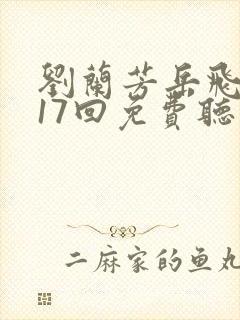 劉蘭芳岳飛
17回免費聽
二麻家的鱼丸